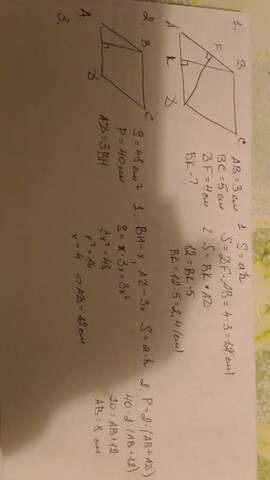 1.
A
F
B
K
D
C
AB = 3 см
BC = 5 см
DF = 4 см
BK - ?
1. S = a·h
S = DF · AB = 4 · 3 = 12 (см)
2. S = BK · AD
12 = BK · 5
BK = 12 : 5 = 2,4 (см)
2.
A
B
D
C
S = 48 см²
P = 40 см
AD = 3BH
1. BH - x, AD - 3x S = a·h
S = x · 3x = 3x²
3x² = 48
x² = 16
x = 4 ⇒ AD = 12 см
2. P = 2 · (AB + AD)
40 = 2 · (AB + 12)
20 = AB + 12
AB = 8 см
3.